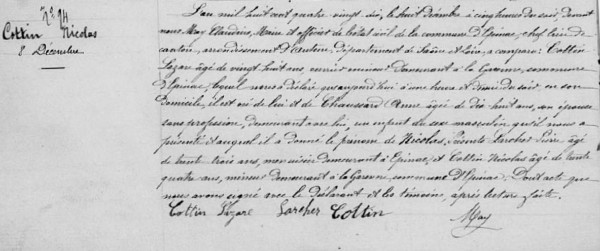 N° 94
Cottin Nicolas
8 Décembre
L'an mil huit cent quatre vingt dix, le huit Décembre à cinq heures du soir, devant
nous May Claudius, Maire et officier de l'état civil de la commune d'Epinac, chef lieu de
canton, arrondissement d'Autun, Département de Saône et Loire, a comparu: Cottin
Lazare âgé de vingt huit ans, ouvrier mineur demeurant à la Garenne, commune
d'Epinac, lequel nous a déclaré qu'aujourd'hui à une heure et demie du soir, en son
domicile, il est né de lui et de Chaussard Anne âgée de dix huit ans, son épouse
sans profession, demeurant avec lui, un enfant du sexe masculin, qu'il nous a
présenté et auquel il a donné le prénom de Nicolas. Présents Larcher Pierre, âgé
de trente trois ans, menuisier demeurant à Epinac, et Cottin Nicolas âgé de trente
quatre ans, mineur demeurant à la Garenne, commune d'Epinac. Dont acte que
nous avons signé avec le déclarant et les témoins, après lecture faite.
Cottin Lazare Larcher Cottin
May